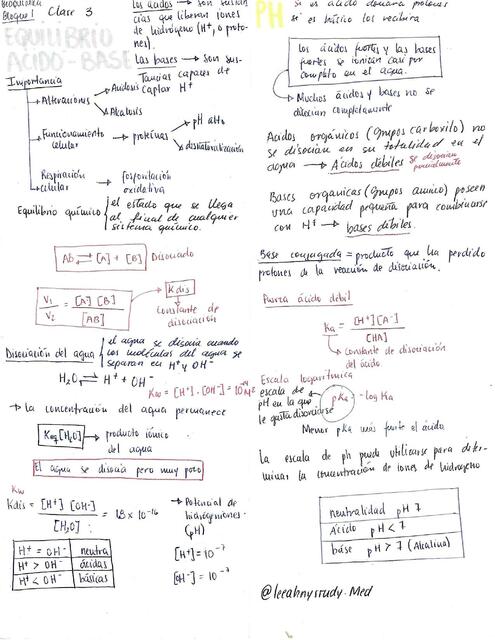 Bioquímica
Bloque 1 Clase 3
EQUILIBRIO
ACIDO-BASE
los ácidos → son sustan
cias que liberan iones
de hidrógeno (H⁺, o proto-
nes).
Las bases → son sus-
tancias capaces de
captar H⁺
Importancia
→ Alteraciones
→ Acidosis
→ Alcalosis
→ Funcionamiento
celular
→ proteínas
→ pH alto
→ Respiración
celular
→ fosforilación
oxidativa
Equilibrio químico
el estado que se llega
al final de cualquier
sistema químico.
Ab ⇌ [A] + [B] Disociado
V₁/V₂ = [A] [B] / [AB] → Kdis
Constante de
disociación
Disociación del agua
el agua se disocia cuando
las moléculas del agua se
separan en H⁺ y OH⁻
H₂O ⇌ H⁺ + OH⁻
Kw = [H⁺] . [OH⁻] = 10⁻¹⁴ M²
→ La concentración del agua permanece
Keq [H₂O] → producto iónico
del agua
El agua se disocia pero muy poco
Kw
Kdis = [H⁺] [OH⁻] / [H₂O] = 1.8 x 10⁻¹⁶
→ Potencial de
hidrogeniones
(pH)
[H⁺] = 10⁻⁷
[OH⁻] = 10⁻⁷
H⁺ = OH⁻ neutra
H⁺ > OH⁻ ácidas
H⁺ < OH⁻ básicas
PH
si es ácido donará protones
si es básico los recibirá
los ácidos fuertes y las bases
fuertes se ionizan casi por
completo en el agua.
→ Muchos ácidos y bases no se
disocian completamente
Acidos orgánicos (Grupos carboxilo) no
se disocian en su totalidad en el
agua → Ácidos débiles se disocian
parcialmente
Bases organicas (Grupos amino) poseen
una capacidad pequeña para combinarse
con H⁺ → bases débiles.
Base conjugada = producto que ha perdido
protones de la reacción de disociación.
Fuerza ácido debil
Ka = [H⁺][A⁻] / [HA]
→ Constante de disociación
del ácido.
Escala logarítmica
escala de
pH en la que
le gusta disociarse
pKa = -log Ka
Menor pKa más fuerte el ácido
La escala de ph puede utilizarse para deter-
minar la concentración de iones de hidrogeno
neutralidad pH 7
Ácido pH < 7
base pH > 7 (Alcalina)
@leeahnystudy.Med